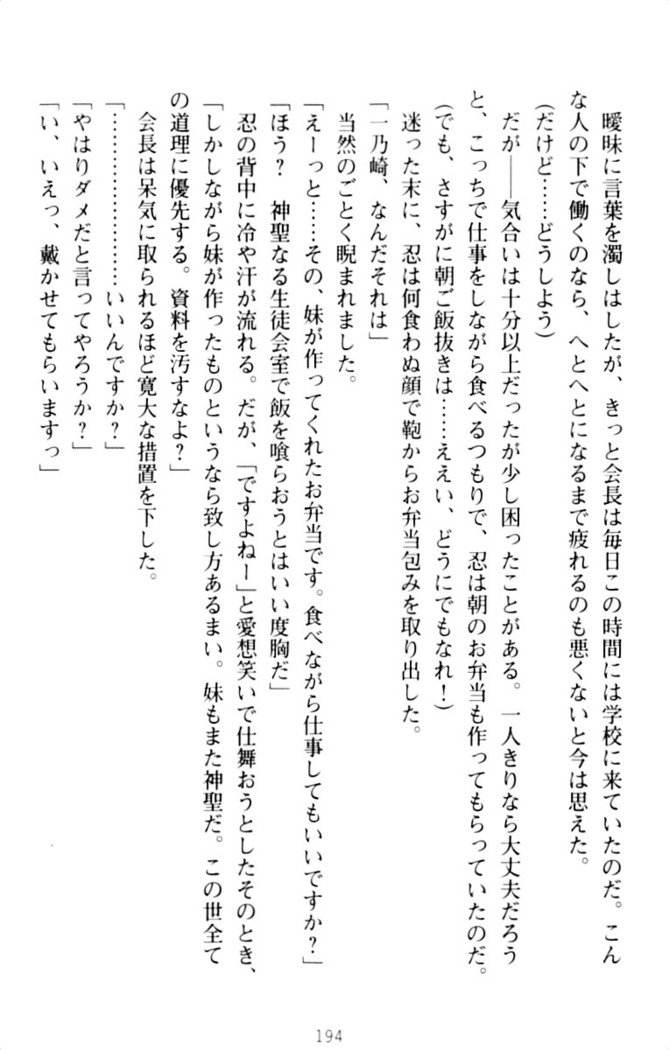 曖昧に言葉を濁しはしたが、きっと会長は毎日この時間には学校に来ていたのだ。こん
な人の下で働くのなら、へとへとになるまで疲れるのも悪くないと今は思えた。
(だけど……どうしよう)
だが――気合いは十分以上だったが少し困ったことがある。一人きりなら大丈夫だろう
と、こっちで仕事をしながら食べるつもりで、忍は朝のお弁当も作ってもらっていたのだ。
(でも、さすがに朝ご飯抜きは……ええい、どうにでもなれ！)
迷った末に、忍は何食わぬ顔で鞄からお弁当包みを取り出した。
「一乃崎、なんだそれは」
当然のごとく睨まれました。
「えーっと……その、妹が作ってくれたお弁当です。食べながら仕事してもいいですか？」
「ほう？　神聖なる生徒会室で飯を喰らおうとはいい度胸だ」
忍の背中に冷や汗が流れる。だが、「ですよねー」と愛想笑いで仕舞おうとしたそのとき、
「しかしながら妹が作ったものというなら致し方あるまい。妹もまた神聖だ。この世全て
の道理に優先する。資料を汚すなよ？」
会長は呆気に取られるほど寛大な措置を下した。
「…………………いいんですか？」
「やはりダメだと言ってやろうか？」
「い、いえっ、戴かせてもらいますっ」
194